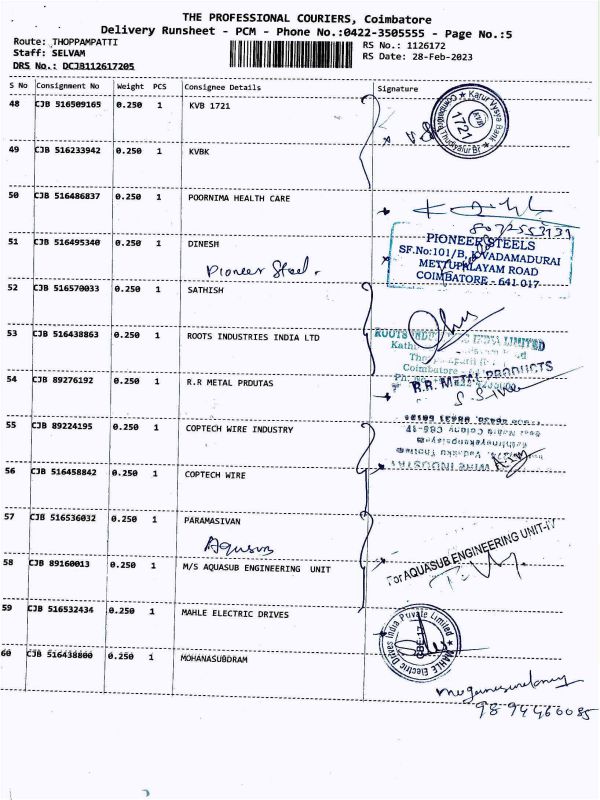 THE PROFESSIONAL COURIERS, Coimbatore
Delivery Runsheet - PCM - Phone No.:0422-3505555 - Page No.:5
Route: THOPPAMPATTI
RS No.: 1126172
Staff: SELVAM
RS Date: 28-Feb-2023
DRS No.: DCJB112617205
S No Consignment No Weight PCS Consignee Details Signature
48 CJB 516509165 0.250 1 KVB 1721
Karur Vysya Bank
1721
KVB
49 CJB 516233942 0.250 1 KVBK
50 CJB 516486837 0.250 1 POORNIMA HEALTH CARE
8072553131
51 CJB 516495340 0.250 1 DINESH
Pioneer Steel.
PIONEER STEELS
SF.No:101/B, K.VADAMADURAI
METTUPALAYAM ROAD
COIMBATORE - 641 017
52 CJB 516570033 0.250 1 SATHISH
53 CJB 516438863 0.250 1 ROOTS INDUSTRIES INDIA LTD
ROOTS INDUSTRIES INDIA LIMITED
54 CJB 89276192 0.250 1 R.R METAL PRDUTAS
R.R. METAL PRODUCTS
55 CJB 89224195 0.250 1 COPTECH WIRE INDUSTRY
WIRE INDUSTRY
56 CJB 516458842 0.250 1 COPTECH WIRE
57 CJB 516536032 0.250 1 PARAMASIVAN
Aquasub
58 CJB 89160013 0.250 1 M/S AQUASUB ENGINEERING UNIT
For AQUASUB ENGINEERING UNIT-IV
59 CJB 516532434 0.250 1 MAHLE ELECTRIC DRIVES
MAHLE Electric Drives India Private Limited
CBE-17
60 CJB 516438800 0.250 1 MOHANASUBDRAM
98 94460085